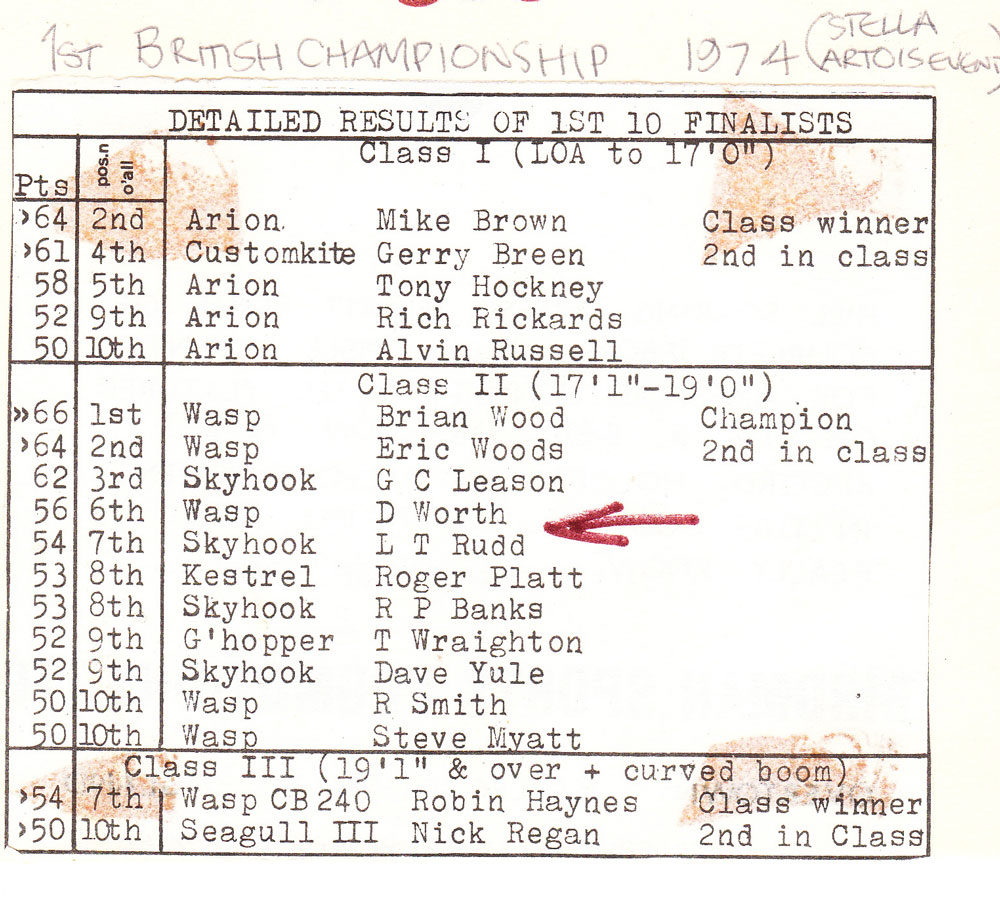 1ST BRITISH CHAMPIONSHIP 1974 (STELLA
ARTOIS EVENT)
DETAILED RESULTS OF 1ST 10 FINALISTS
Class I (LOA to 17'0")
Pts pos.n o'all
›64 2nd Arion Mike Brown Class winner
›61 4th Customkite Gerry Breen 2nd in class
58 5th Arion Tony Hockney
52 9th Arion Rich Rickards
50 10th Arion Alvin Russell
Class II (17'1"-19'0")
»66 1st Wasp Brian Wood Champion
›64 2nd Wasp Eric Woods 2nd in class
62 3rd Skyhook G C Leason
56 6th Wasp D Worth
54 7th Skyhook L T Rudd
53 8th Kestrel Roger Platt
53 8th Skyhook R P Banks
52 9th G'hopper T Wraighton
52 9th Skyhook Dave Yule
50 10th Wasp R Smith
50 10th Wasp Steve Myatt
Class III (19'1" & over + curved boom)
›54 7th Wasp CB 240 Robin Haynes Class winner
›50 10th Seagull III Nick Regan 2nd in Class